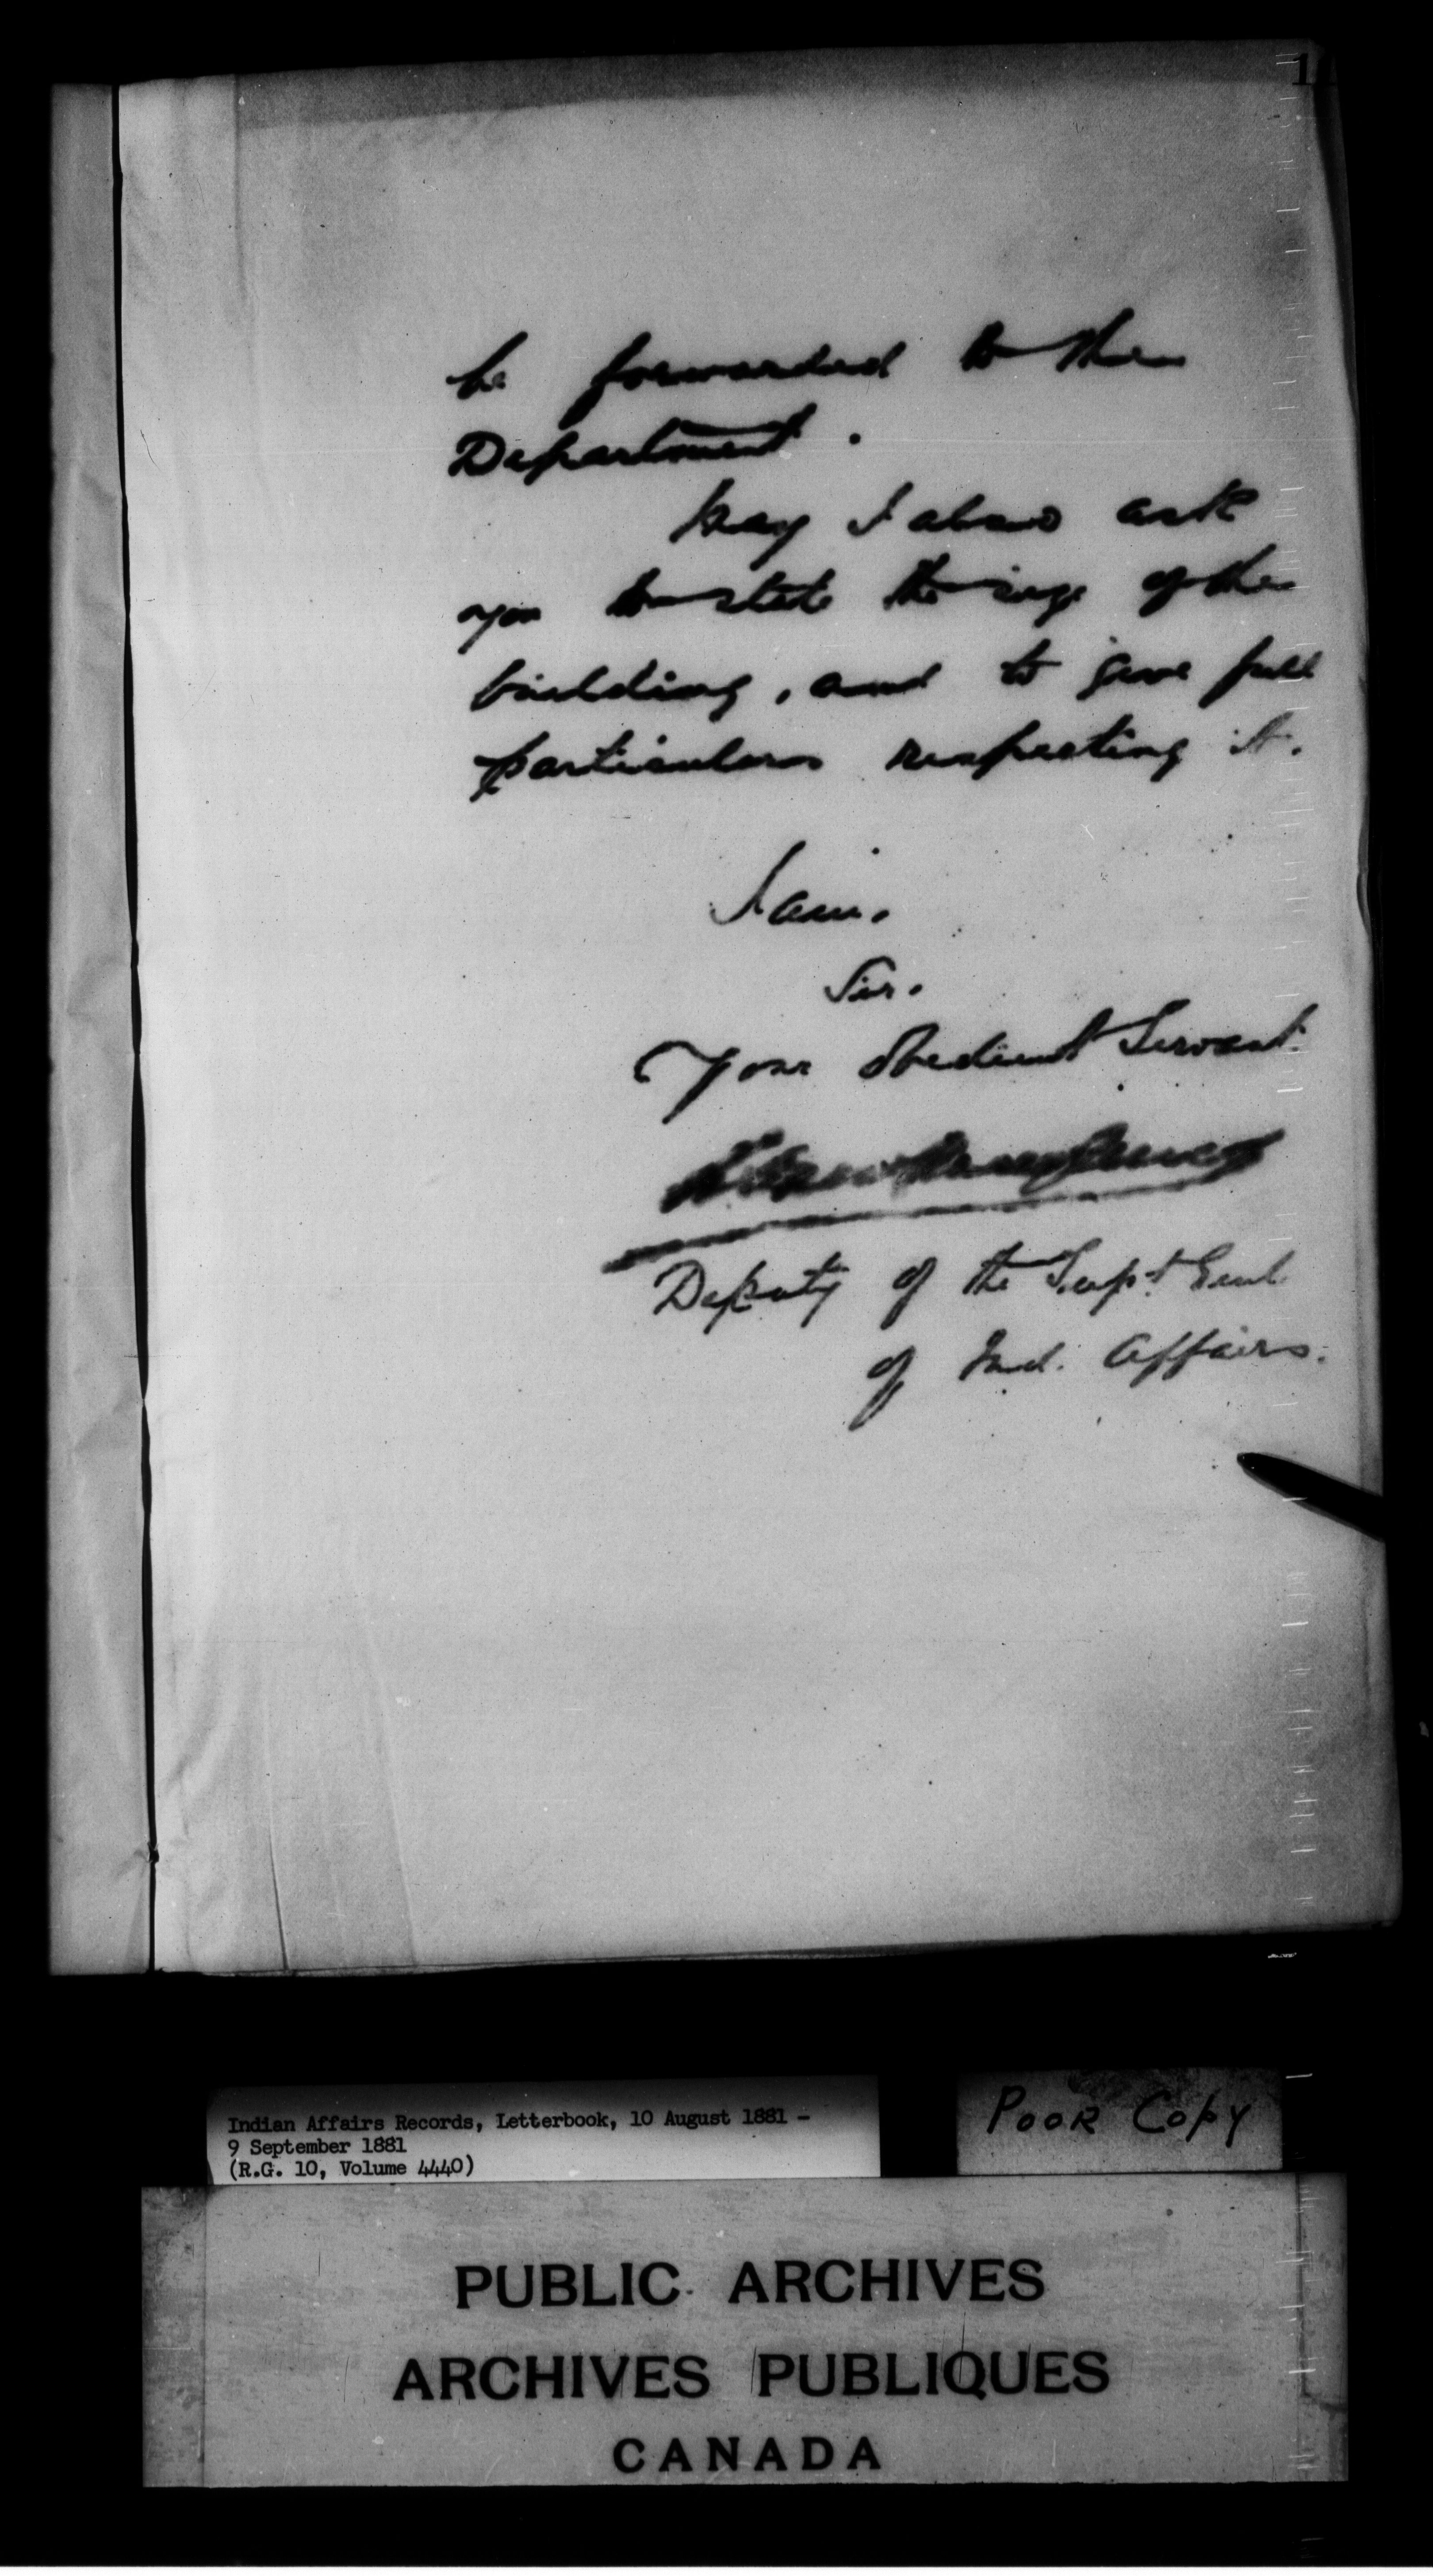 11
be forwarded to the
Department.
May I also ask
you to state the size of the
building, and to give full
particulars respecting it.
I am.
Sir.
Your Obedient Servant.
Deputy of the Supt Genl
of Ind. Affairs.
Indian Affairs Records, Letterbook, 10 August 1881 -
9 September 1881
(R.G. 10, Volume 4440)
POOR COPY
PUBLIC ARCHIVES
ARCHIVES PUBLIQUES
CANADA